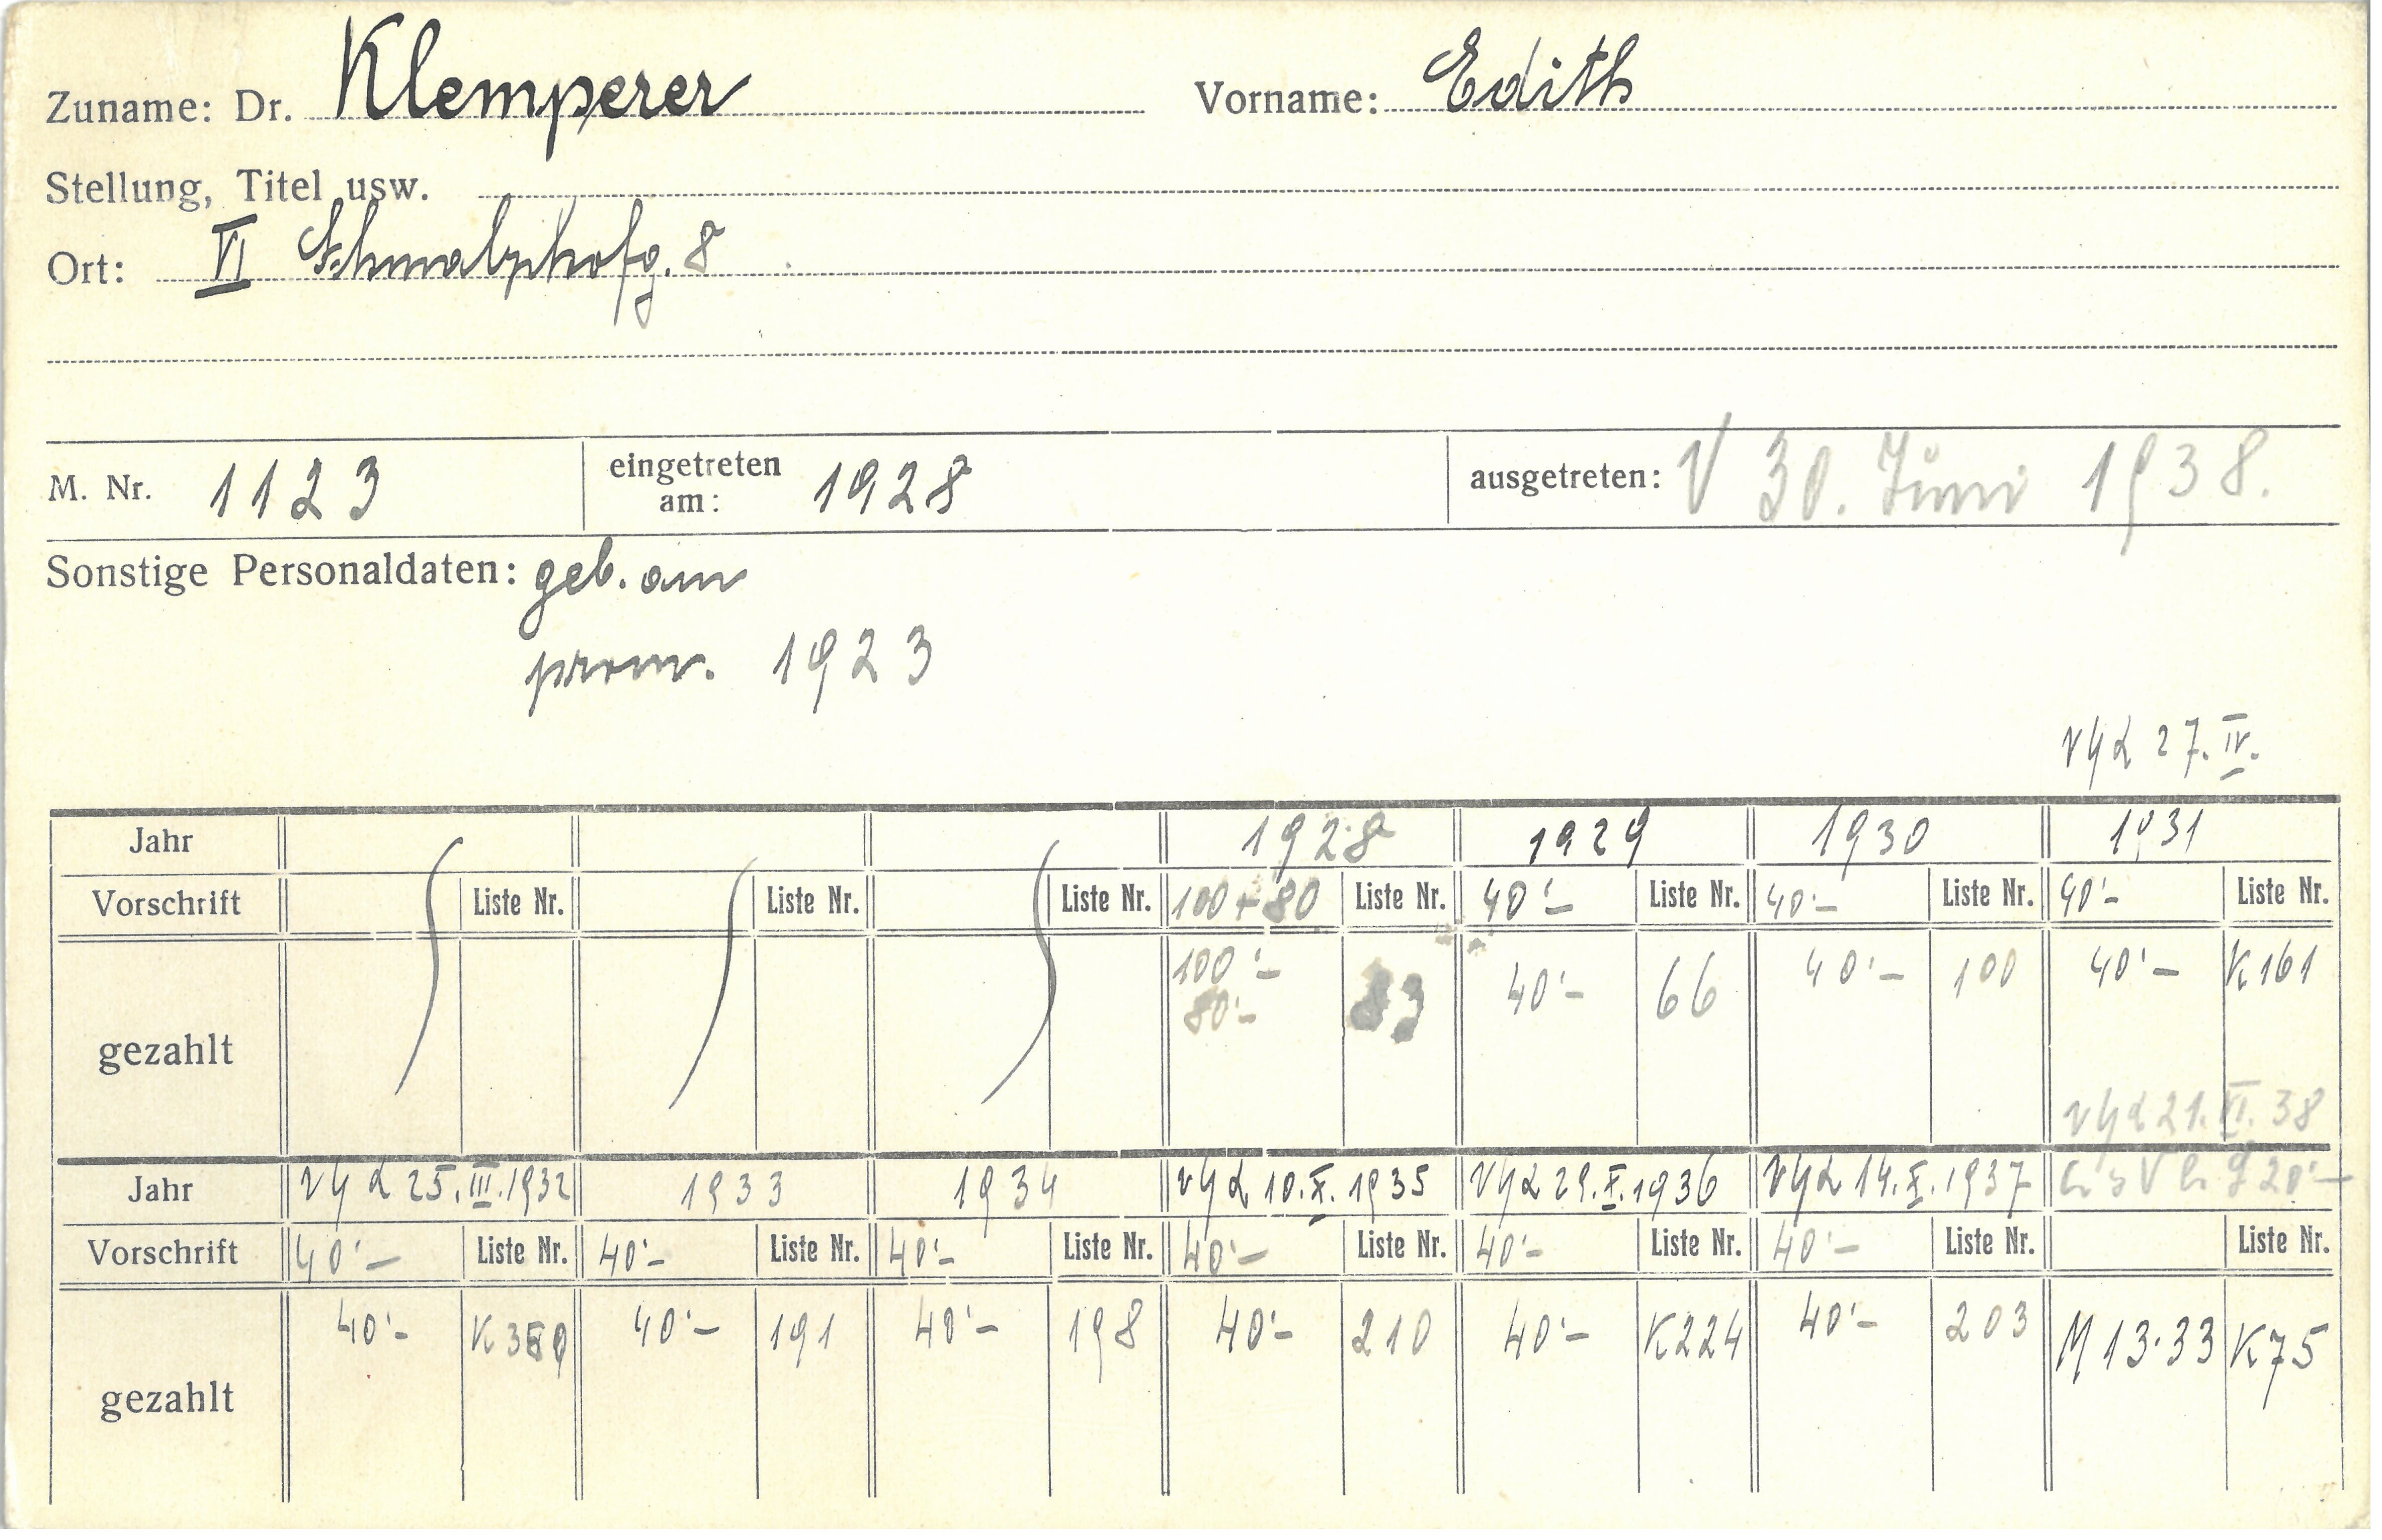 Zuname: Dr. Klemperer Vorname: Edith
Stellung, Titel usw.
Ort: VI Schmalzhofg. 8
M. Nr. 1123 eingetreten am: 1928 ausgetreten: 30. Juni 1938.
Sonstige Personaldaten: geb. am
prom. 1923
27. IV.
Jahr 1928 1929 1930 1931
Vorschrift Liste Nr. Liste Nr. Liste Nr. 100 + 80 Liste Nr. 40'- Liste Nr. 40'- Liste Nr. 40'- Liste Nr.
gezahlt 100'- 83 40'- 66 40'- 100 40'- K 161
80'-
21. XI. 38
Jahr 25. III. 1932 1933 1934 10. X. 1935 29. X. 1936 14. X. 1937 20'-
Vorschrift 40'- Liste Nr. 40'- Liste Nr. 40'- Liste Nr. 40'- Liste Nr. 40'- Liste Nr. 40'- Liste Nr. Liste Nr.
gezahlt 40'- 40'- 191 40'- 198 40'- 210 40'- K224 40'- 203 M 13·33 K75